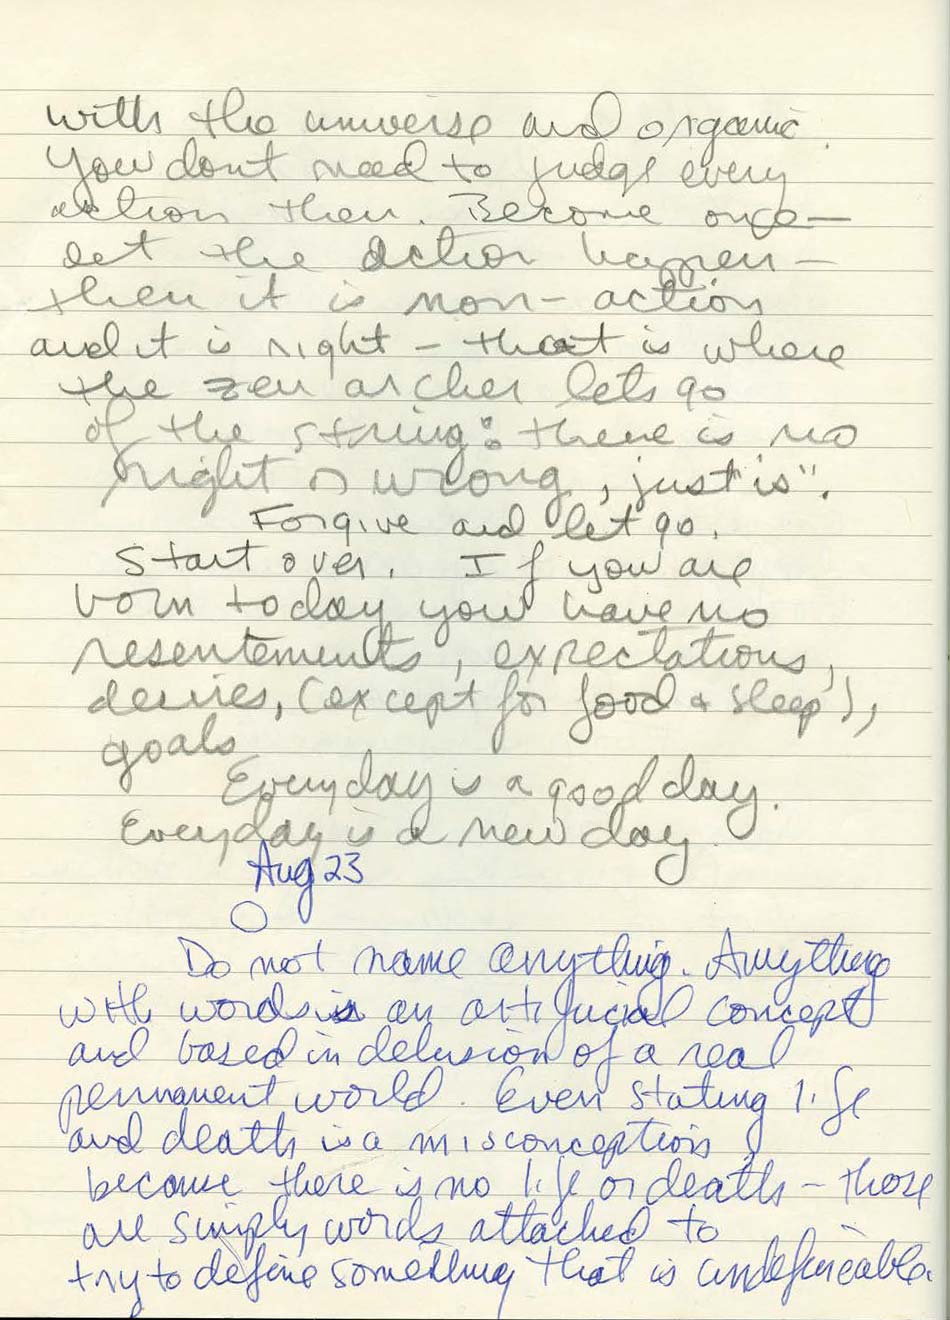 with the universe and organic.
You dont need to judge every
action then. Become once—
let the action happen —
then it is non-action
and it is right - that is where
the zen archer lets go
of the string: there is no
right or wrong, just is".
Forgive and let go.
Start over. If you are
born today you have no
resentements, expectations,
desires, (except for food & sleep),
goals
Everyday is a good day.
Everyday is a new day
Aug 23
Do not name anything. Anything
with words is an artificial concept
and based in delusion of a real
permanent world. Even stating life
and death is a misconception
because there is no life or death - those
are simply words attached to
try to define something that is undefineable.